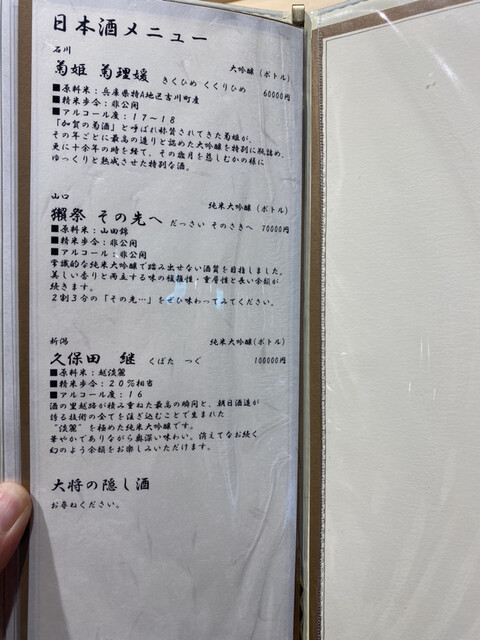 日本酒メニュー
石川
菊姫 菊理媛 きくひめ くくりひめ 大吟醸（ボトル） 60000円
■原料米：兵庫県特A地区吉川町産
■精米歩合：非公開
■アルコール度：17～18
「加賀の菊酒」と呼ばれ称賛されてきた菊姫が、
その年ごとに最高の造りと認めた大吟醸を特別に瓶詰め、
更に十余年の時を経て、その歳月を慈しむかの様に
ゆっくりと熟成させた特別な酒。
山口
獺祭 その先へ だっさい そのさきへ 純米大吟醸（ボトル） 70000円
■原料米：山田錦
■精米歩合：非公開
■アルコール：非公開
常識的な純米大吟醸で踏み出せない酒質を目指しました。
美しい香りと両立する味の複雑性・重層性と長い余韻が
続きます。
2割3分の「その先…」をぜひ味わってみてください。
新潟
久保田 継 くぼた つぐ 純米大吟醸（ボトル） 100000円
■原料米：越淡麗
■精米歩合：20%相当
■アルコール度：16
酒の里越路が積み重ねた最高の瞬間と、朝日酒造が
誇る技術の全てを注ぎ込むことで生まれた
"淡麗"を極めた純米大吟醸です。
華やかでありながら奥深い味わい。消えてなお続く
幻のような余韻をお楽しみいただけます。
大将の隠し酒
お尋ねください。